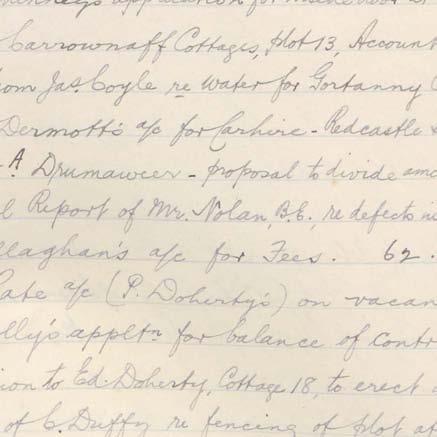 application for inside door
Carrownaff Cottages, plot 13, Account
from Jas. Coyle re water for Gortanny
Dermott's a/c for Carhire - Redcastle &
A Drumaweer - proposal to divide
Report of Mr. Nolan, B.E., re defects
llaghan's a/c for Fees. 62.
Rate a/c (P. Doherty's) on vacan
lly's appltn for balance of contr
ion to Ed. Doherty, Cottage 18, to erect
of C. Duffy re fencing of plot at